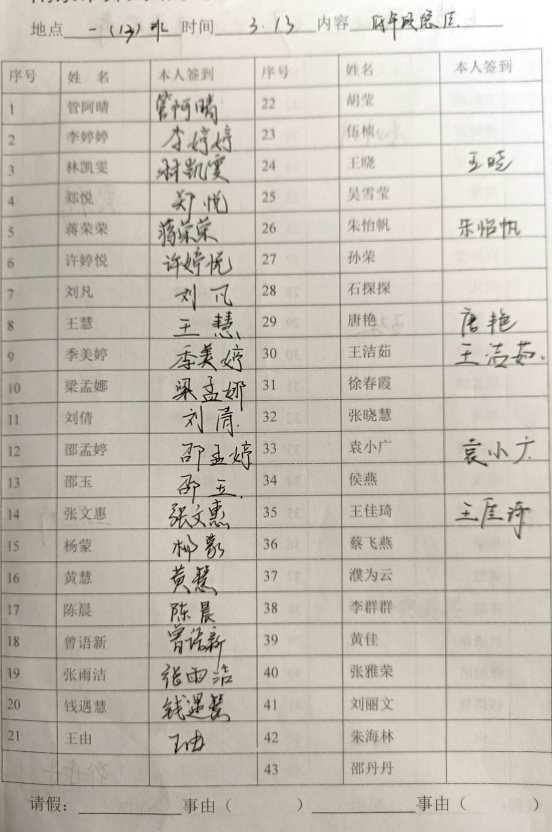 地点 一(13)班 时间 3.13 内容
序号 姓 名 本人签到 序号 姓名 本人签到
1 管阿晴 管阿晴 22 胡莹
2 李婷婷 李婷婷 23 伍桢
3 林凯雯 林凯雯 24 王晓 王晓
4 郑悦 郑悦 25 吴雪莹
5 蒋荣荣 蒋荣荣 26 朱怡帆 朱怡帆
6 许婷悦 许婷悦 27 孙荣
7 刘凡 刘凡 28 石探探
8 王慧 王慧 29 唐艳 唐艳
9 季美婷 季美婷 30 王洁茹 王洁茹.
10 梁孟娜 梁孟娜 31 徐春霞
11 刘倩 刘倩 32 张晓慧
12 邵孟婷 邵孟婷 33 袁小广 袁小广
13 邵玉 邵玉 34 侯燕
14 张文惠 张文惠 35 王佳琦 王佳琦
15 杨蒙 杨蒙 36 蔡飞燕
16 黄慧 黄慧 37 濮为云
17 陈晨 陈晨 38 李群群
18 曾语新 曾语新 39 黄佳
19 张雨洁 张雨洁 40 张雅荣
20 钱遇慧 钱遇慧 41 刘丽文
21 王由 王由 42 朱海林
43 邵丹丹
请假：__________事由（ ）__________事由（ ）